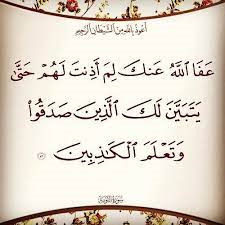 أعوذ بالله من الشيطان الرجيم
عَفَا ٱللَّهُ عَنكَ لِمَ أَذِنتَ لَهُمۡ حَتَّىٰ
يَتَبَيَّنَ لَكَ ٱلَّذِينَ صَدَقُواْ
وَتَعۡلَمَ ٱلۡكَٰذِبِينَ ٤٣
سورة التوبة